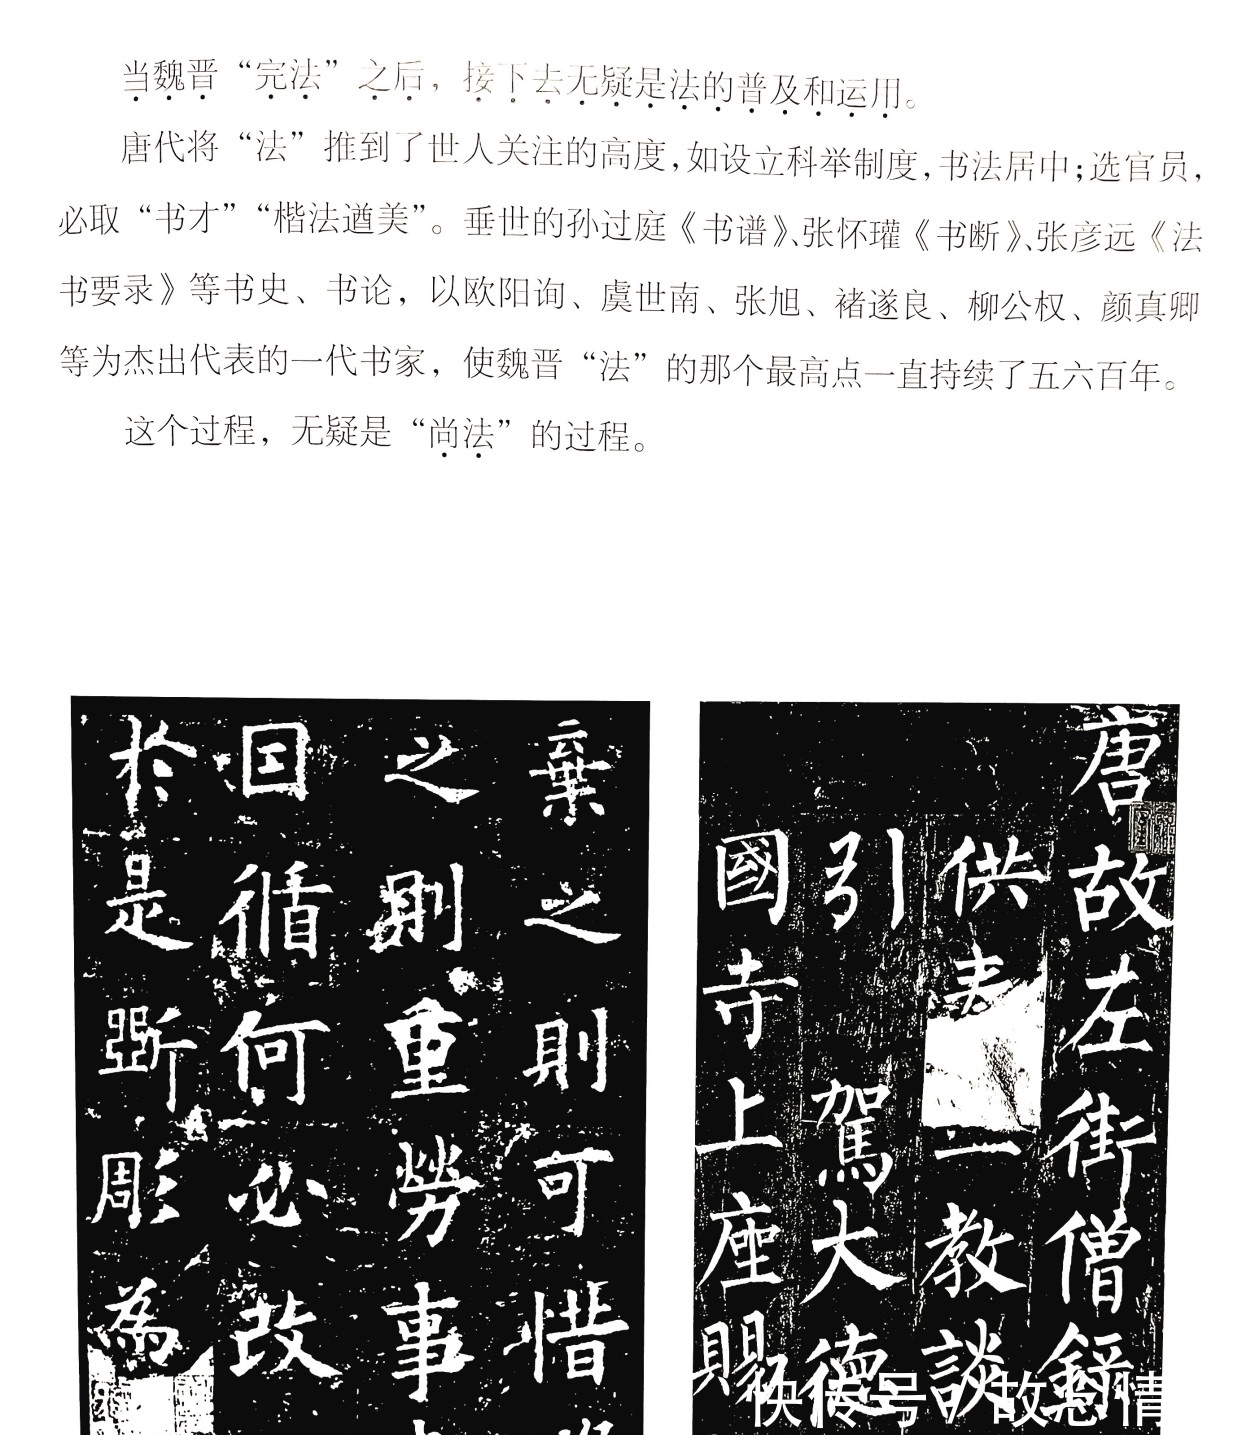 当魏晋“完法”之后，接下去无疑是法的普及和运用。
唐代将“法”推到了世人关注的高度，如设立科举制度，书法居中；选官员，
必取“书才”“楷法遒美”。垂世的孙过庭《书谱》、张怀瓘《书断》、张彦远《法
书要录》等书史、书论，以欧阳询、虞世南、张旭、褚遂良、柳公权、颜真卿
等为杰出代表的一代书家，使魏晋“法”的那个最高点一直持续了五六百年。
这个过程，无疑是“尚法”的过程。
棄之則可惜
之則重勞事
因循何必改
於是斲彫為
唐故左街僧録
供奉三教談
引駕大德
國寺上座賜
快传号/故思情